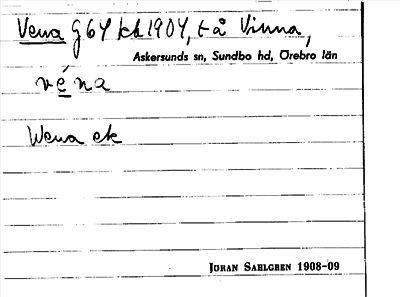 Vena g 64 kh 1904, t å Vinna,
Askersunds sn, Sundbo hd, Örebro län
véna
Wena ek
JÖRAN SAHLGREN 1908-09